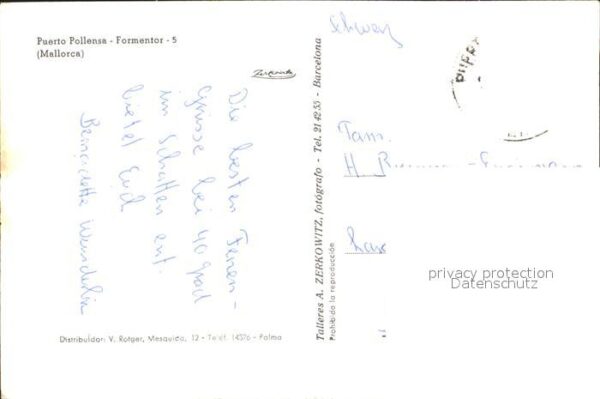 Puerto Pollensa - Formentor - 5
(Mallorca)
Zerkowitz
Die besten Ferien-
grüsse bei 40 grad
im Schatten ent.
bietet Euch
Bernadette
Talleres A. ZERKOWITZ, fotógrafo - Tel. 21 42 55 - Barcelona
Prohibida la reproducción
Schweiz
Fam.
H.
privacy protection
Datenschutz
Distribuidor: V. Rotger, Mesquida, 12 - Teléf. 14576 - Palma